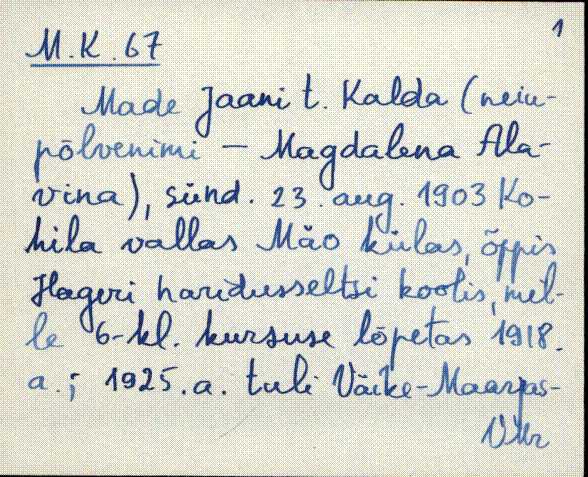 1
M.K. 67
Made Jaani t. Kalda (neiu-
põlvenimi — Magdalena Ala-
vina), sünd. 23. aug. 1903 Ko-
hila vallas Mäo külas, õppis
Hageri haridusseltsi koolis, mel-
le 6-kl. kursuse lõpetas 1918.
a.; 1925. a. tuli Väike-Maarjas-